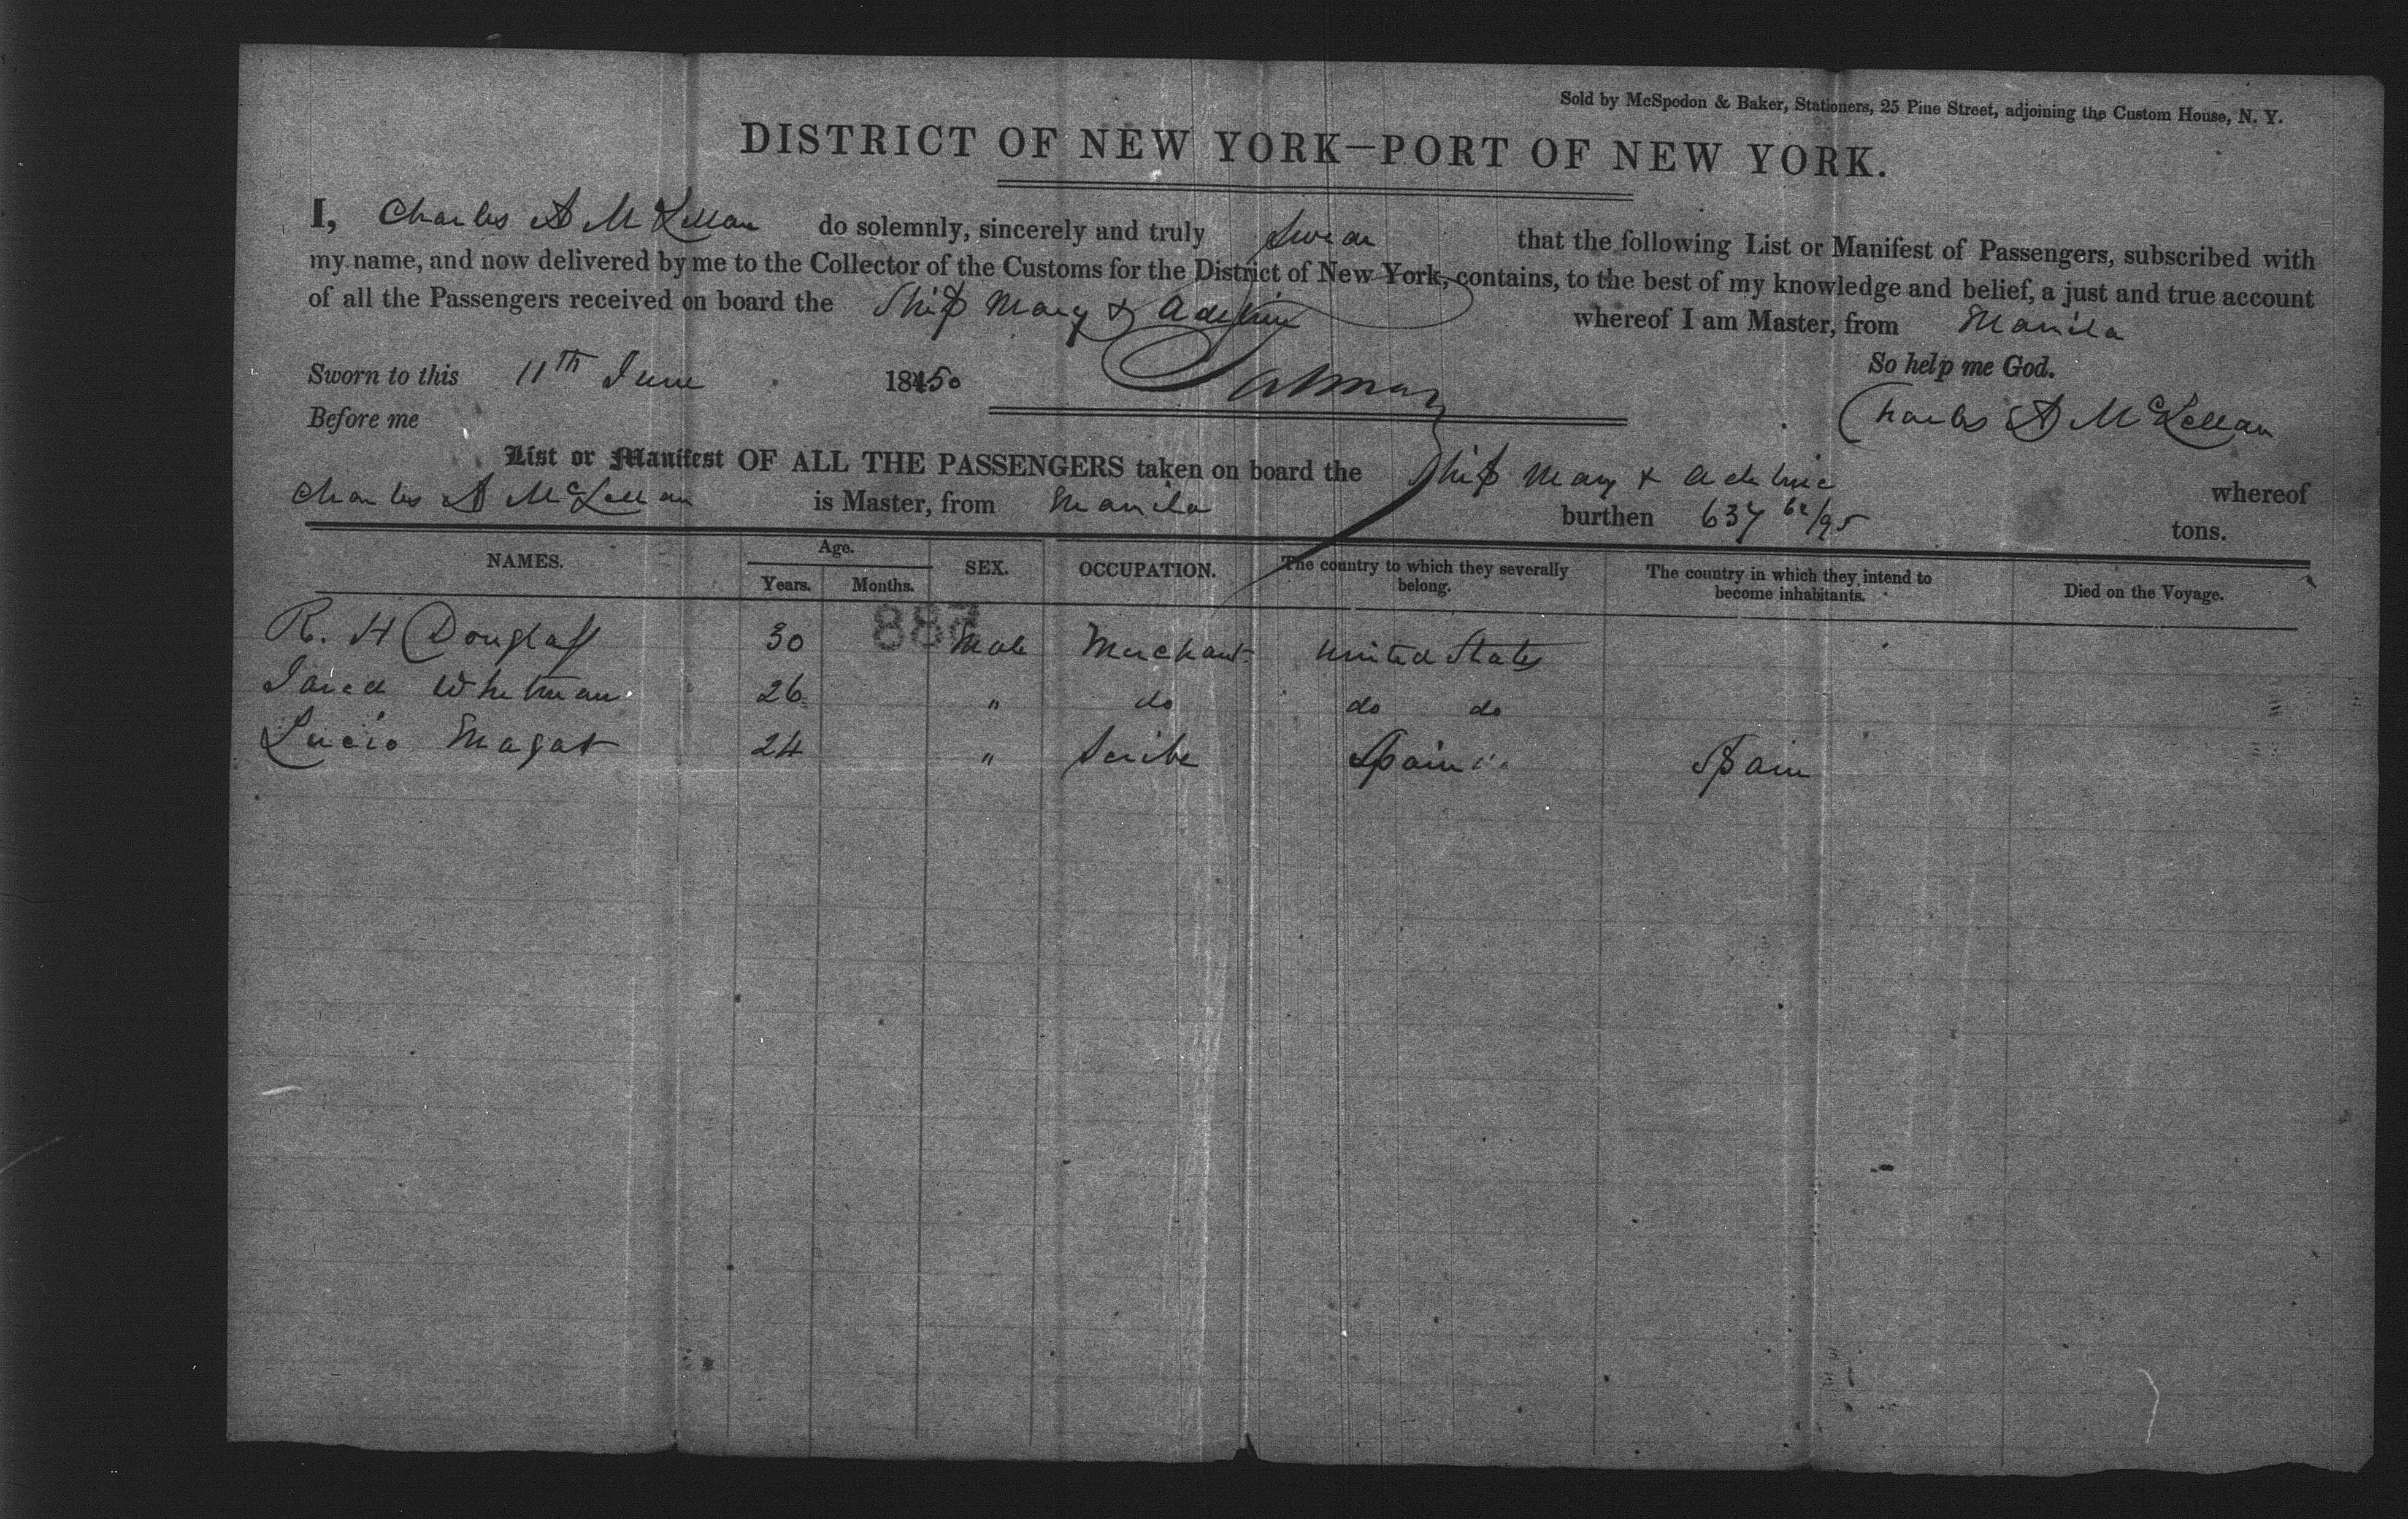 Sold by McSpedon & Baker, Stationers, 25 Pine Street, adjoining the Custom House, N. Y.
DISTRICT OF NEW YORK—PORT OF NEW YORK.
I, Charles A McLellan do solemnly, sincerely and truly swear that the following List or Manifest of Passengers, subscribed with
my name, and now delivered by me to the Collector of the Customs for the District of New York, contains, to the best of my knowledge and belief, a just and true account
of all the Passengers received on board the Ship Mary & Adeline whereof I am Master, from Manila
So help me God.
Sworn to this 11th June 1850
Before me Charles A McLellan
List or Manifest OF ALL THE PASSENGERS taken on board the Ship Mary & Adeline whereof
Charles A McLellan is Master, from Manila burthen 637 62/95 tons.
NAMES. Age. Years. Months. SEX. OCCUPATION. The country to which they severally belong. The country in which they intend to become inhabitants. Died on the Voyage.
R. H Douglass 30 Male Merchant United States
Jared Whitman 26 " do do do
Lucio Magat 24 " Scribe Spain Spain